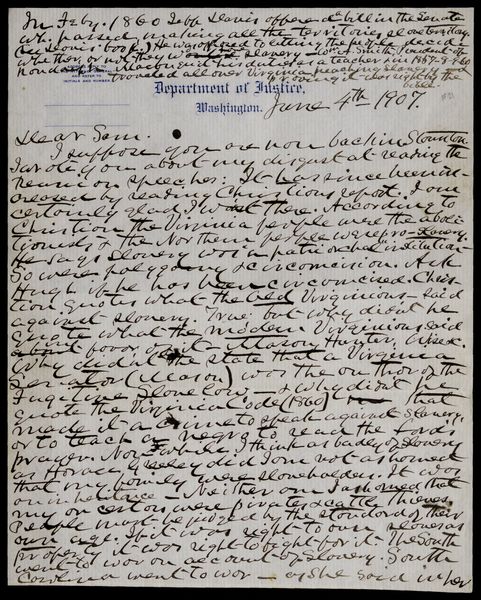 In Feby. 1860 Jeff Davis offered a bill in the Senate
wh. passed, making all the territories slave territory.
(See Davis' book.) He was opposed to letting the people decide
whether or not they would have slavery - Wm. A. Smith, President of
Randolph Macon quit his duties as a teacher & in 1857-8-9-60
traveled all over Virginia preaching slavery and
proving it was right by the
bible.
AND REFER TO
INITIALS AND NUMBER.
Department of Justice,
Washington.
June 4th 1907.
Dear Sam.
I suppose you are now back in Staunton.
I wrote you about my disgust at reading the
Reunion speeches: It has since been in-
creased by reading Christians report. I am
certainly glad I wasn't there. According to
Christian the Virginia people were the aboli-
tionists & the Northern people were pro-slavery.
He says slavery was "a patriarchal" institution -
So were polygamy & circumcision. Ask
Hugh if he has been circumcised. Chris-
tian quotes what the old Virginians - said
against slavery. True; but why didn't he
quote what the modern Virginians said
in favor of it - Mason, Hunter, Wise &c.
Why didn't he state that a Virginia
Senator (Mason) was the author of the
Fugitive Slave law - & why didn't he
quote the Virginia Code (1860) that
made it a crime to speak against slavery,
or to teach a negro to read the Lord's
prayer. Now while I think as badly of slavery
as Horace Greeley did I am not ashamed
that my family were slaveholders. It was
our inheritance - Neither am I ashamed that
my ancestors were pirates & cattle thieves.
People must be judged by the standard of their
own age. If it was right to own slaves as
property it was right to fight for it. The South
went to war on account of Slavery. South
Carolina went to war - as she said in her